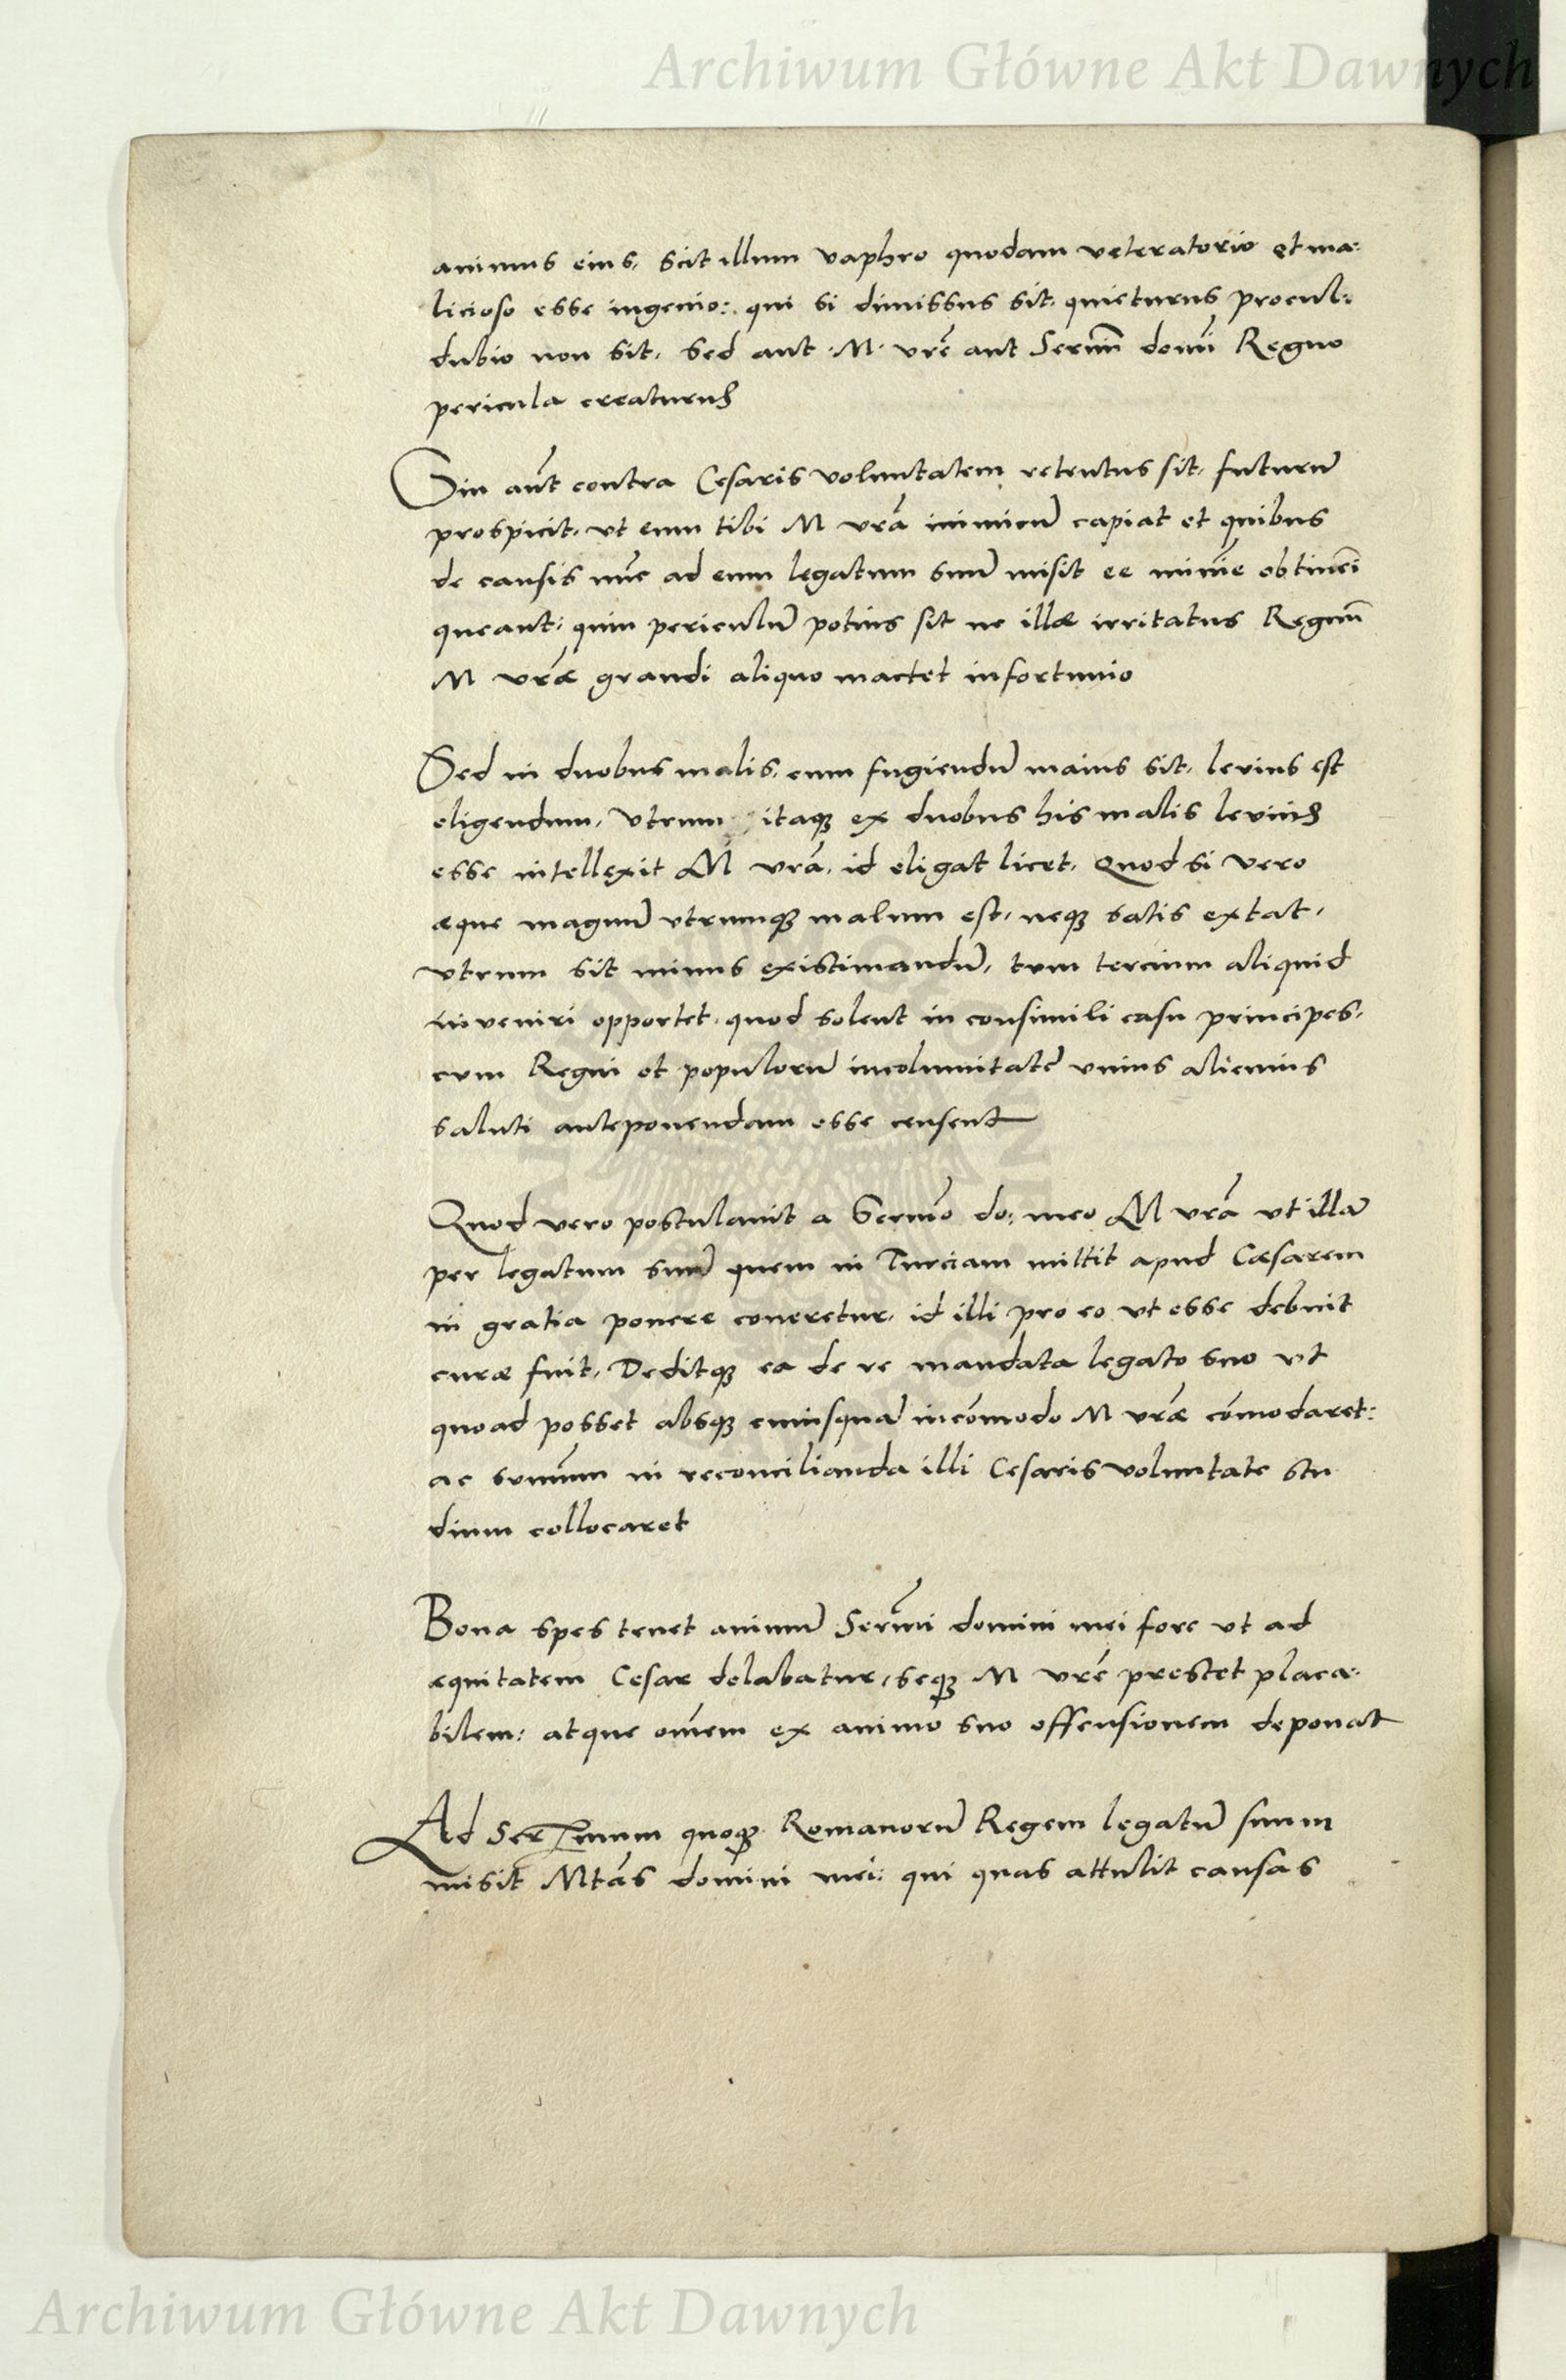 Archiwum Główne Akt Dawnych
animus eius, scit illum vaphro quodam veteratorio et ma:
licioso esse ingenio: qui si dimissus sit, quieturus procul:
dubio non sit, sed aut .M. vrẽ aut Sermi domi Regno
pericula creaturus
Sin aut contra Cesaris voluntatem retentus sit, futurũ
prospicit, ut eum tibi M vrã inimicũ capiat et quibus
de causis nũc ad eum legatum suũ misit ee minĩe obtineri
queant: quin periculũ potius sit ne illæ irritatus Regnũ
M vræ grandi aliquo mactet infortunio
Sed in duobus malis, cum fugiendũ maius sit, levius est
eligendum, Vtrum itaqȝ ex duobus his malis levius
esse intellexit M vrã, id eligat licet, Quod si vero
æque magnũ vtrumqȝ malum est, neqȝ satis extat,
vtrum sit minus existimandũ, tum tercium aliquid
inveniri opportet, quod solent in consimili casu principes,
cum Regni et populorũ incolumitatẽ vnius alicuius
saluti anteponendam esse censent
Quod vero postulavit a Sermo do: meo M vrã vt illã
per legatum suũ quem in Turciam mittit apud Cæsarem
in gratia ponere coneretur, id illi pro eo vt esse debuit
curæ fuit, Deditqȝ ea de re mandata legato suo vt
quoad posset absqȝ cuiusquã incõmodo M vræ cõmodaret:
ac sumum in reconcilianda illi Cesaris voluntate stu
dium collocaret
Bona spes tenet animũ Sermi domini mei fore vt ad
æquitatem Cesar delabatur, seqȝ M vrẽ prestet placa:
bilem: atque omẽm ex animo suo offensionem deponat
Ad Serenmum quoqȝ Romanorũ Regem legatũ suum
misit Mtãs domini mei: qui quas attulit causas
Archiwum Główne Akt Dawnych